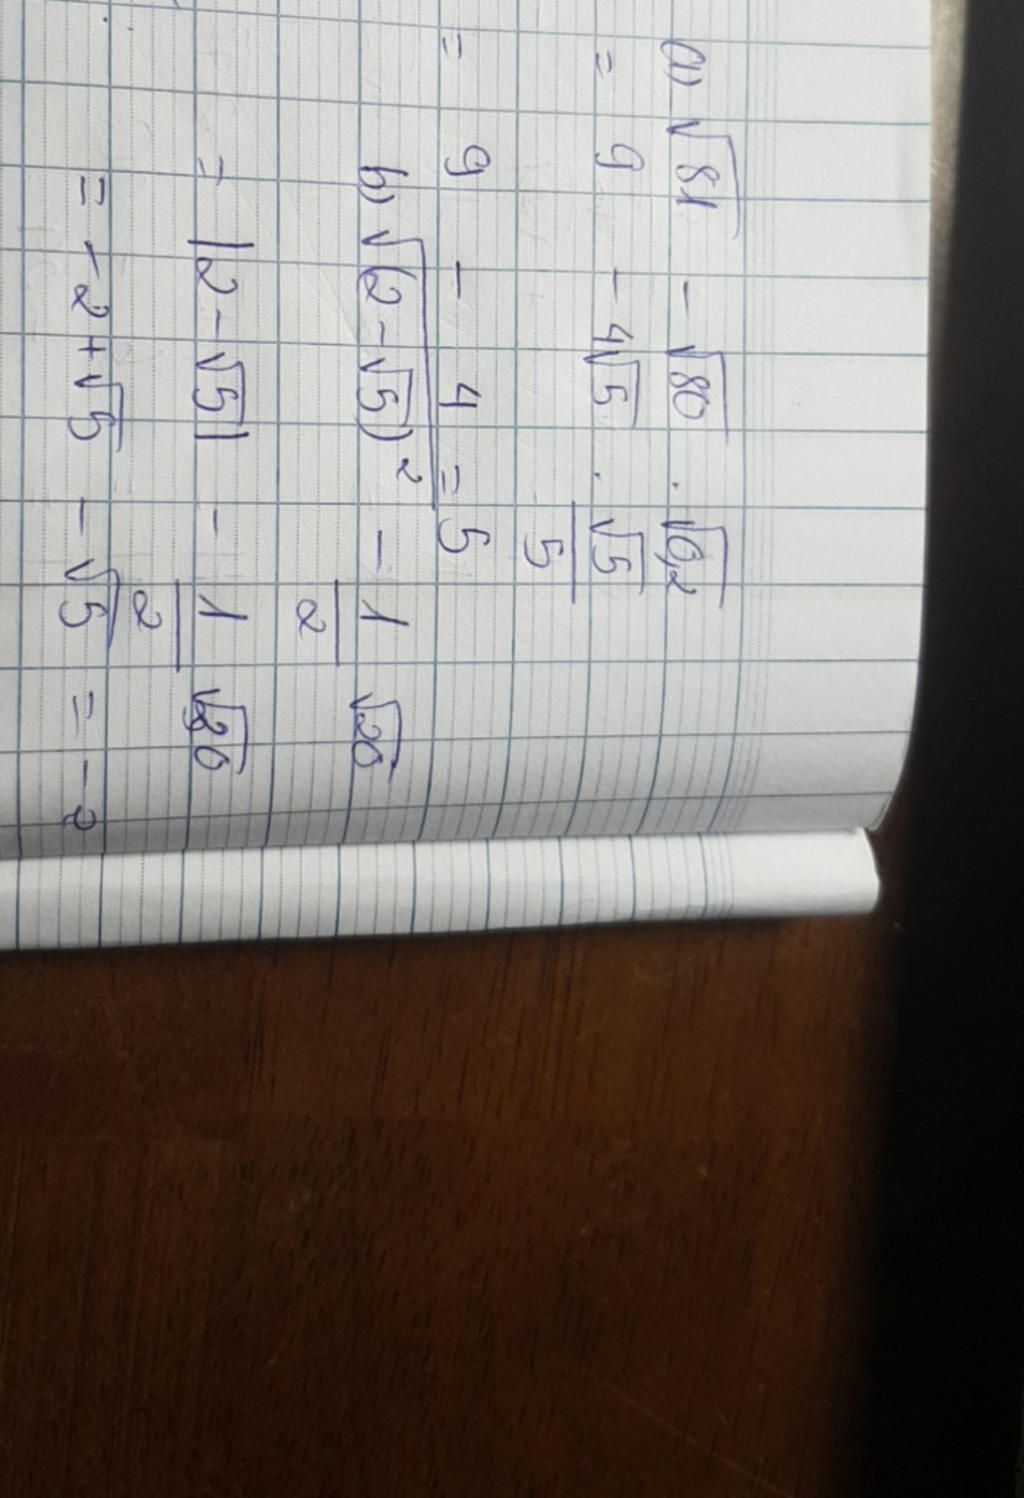 a) √81 - √80 . √0,2
= 9 - 4√5 . √5/5
= 9 - 4 = 5
b) √(2-√5)² - 1/2 √20
= |2-√5| - 1/2 √20
= -2+√5 - √5 = -2